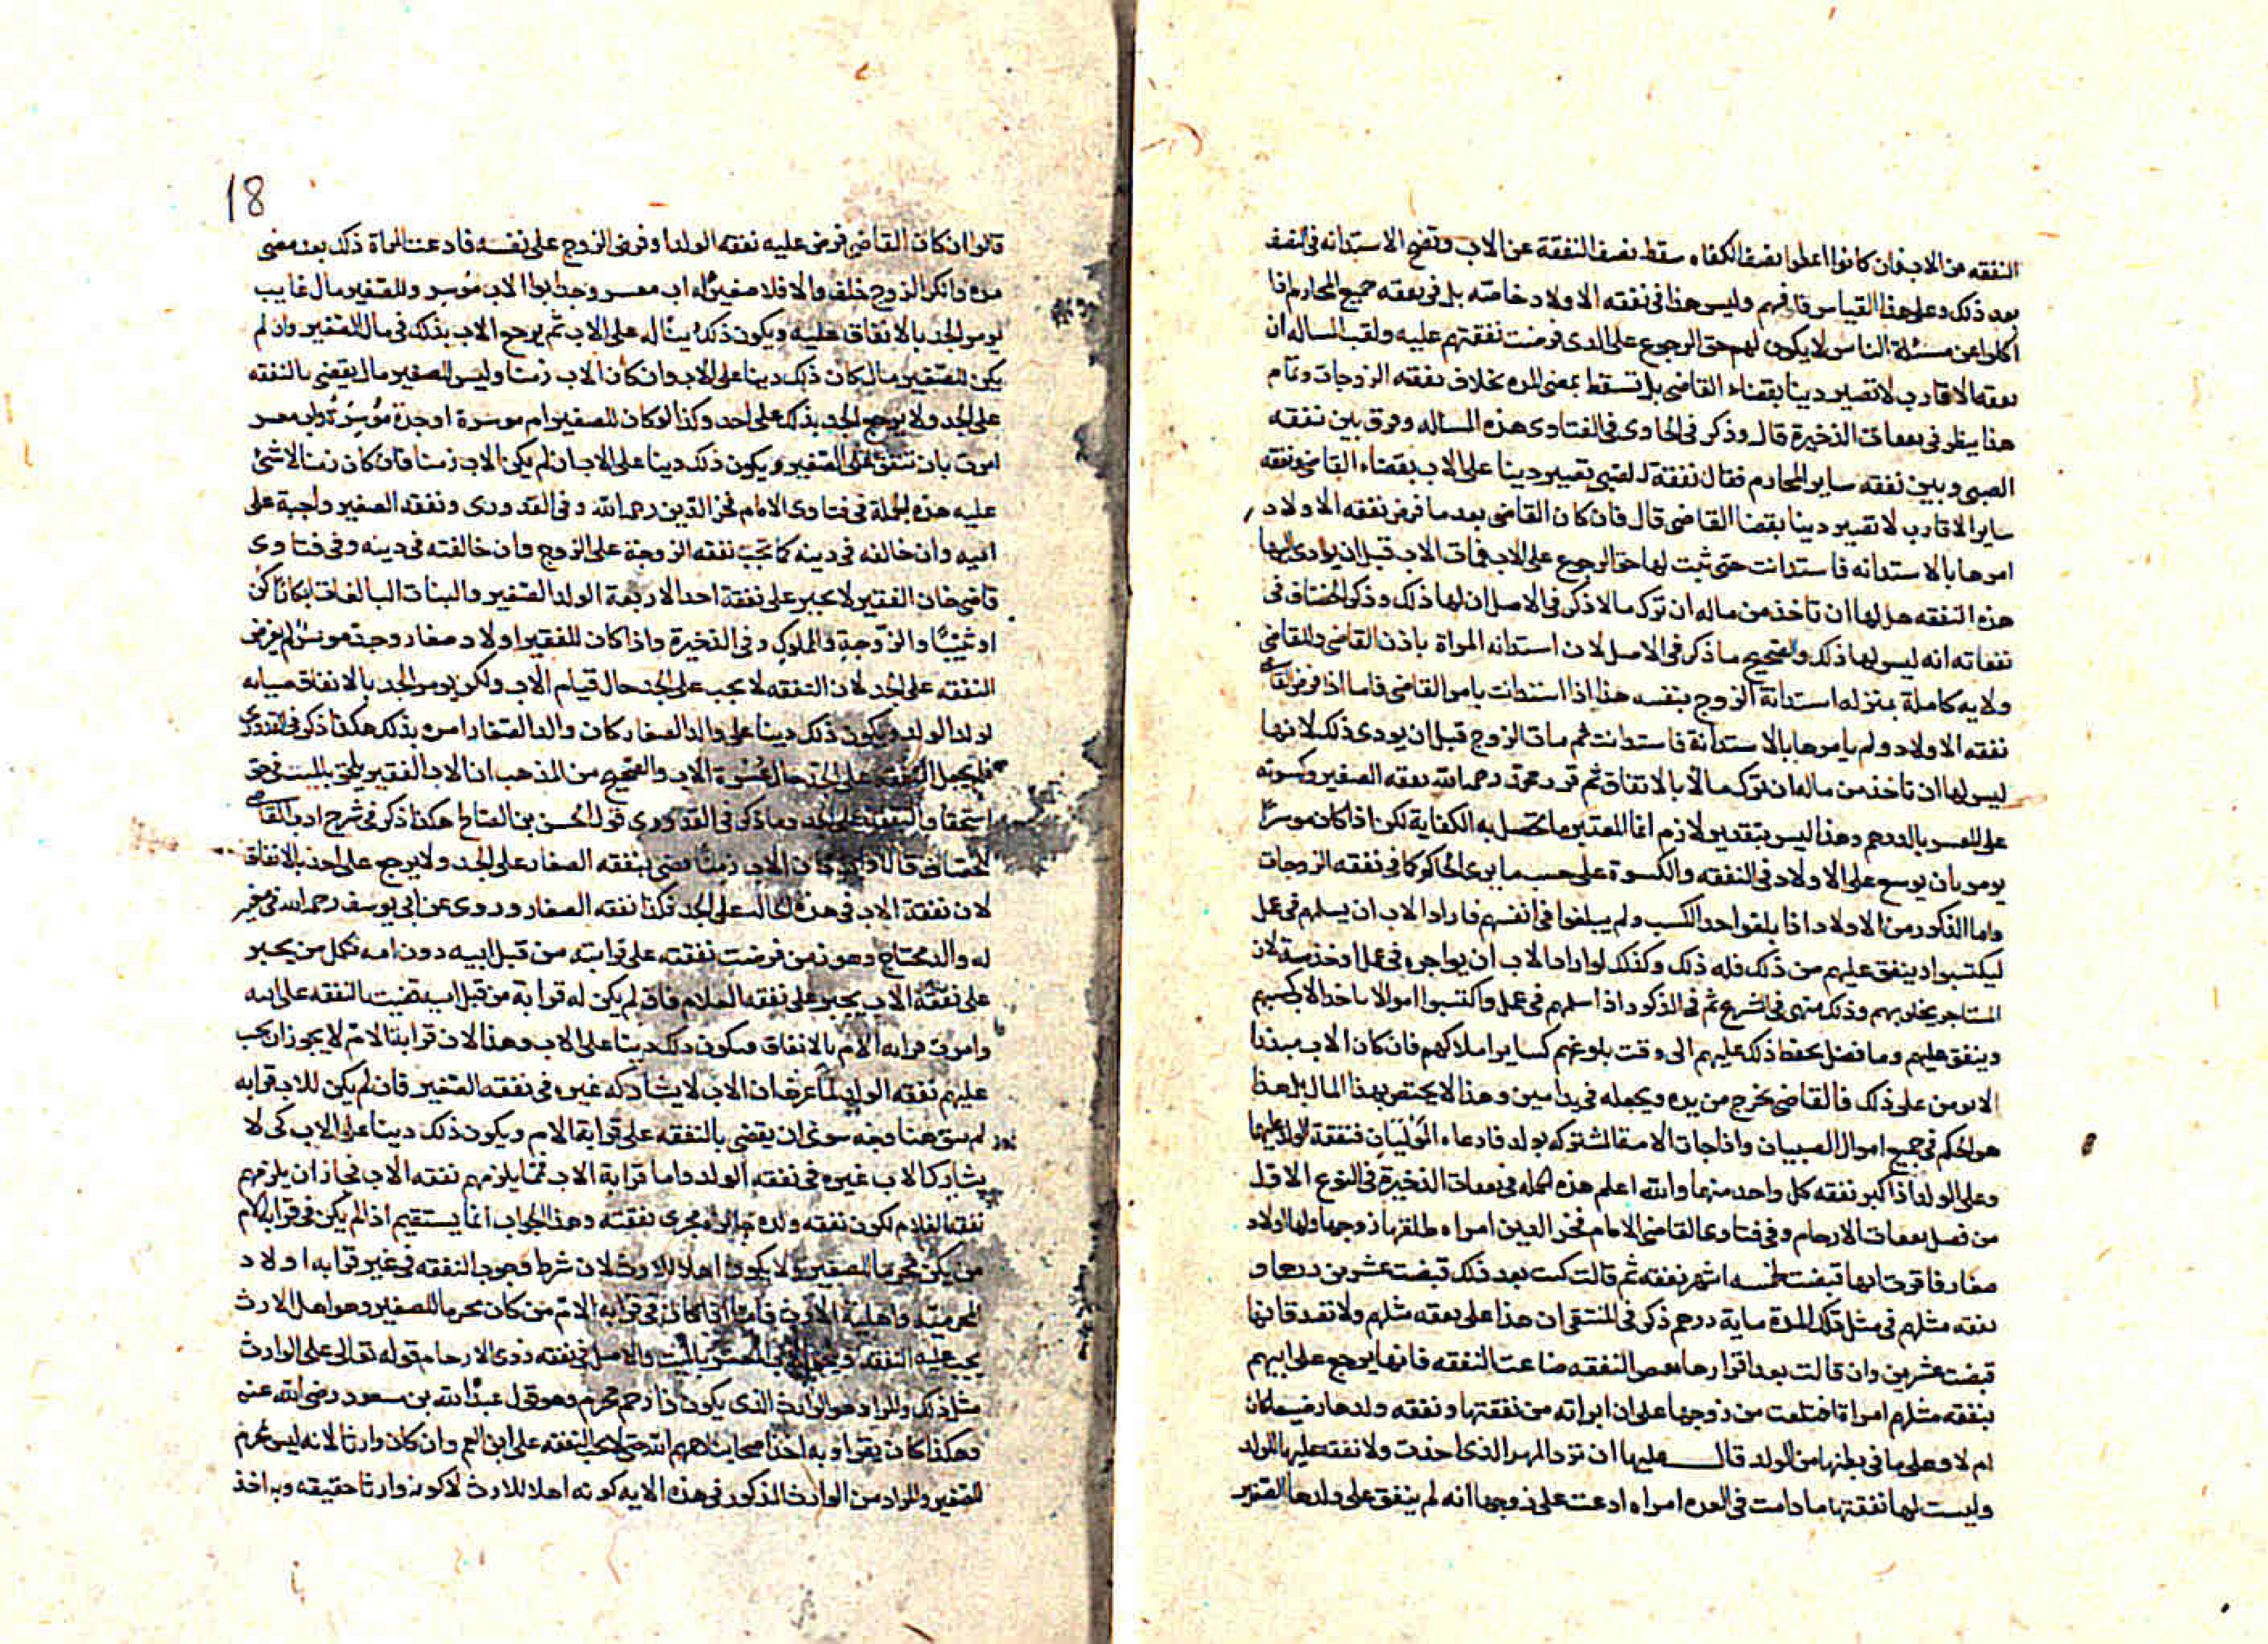 النفقه من الاب فان كانوا اعطوا نصف الكفاه سقط نصف النفقة عن الاب وتصح الاستدانه فى النصف
بعد ذلك وعلى هذا القياس فافهم وليس هذا فى نفقه الاولاد خاصته بل فى نفقه جميع المحارم اذا
اكلوا من مسئلة الناس لا يكون لهم حق الرجوع على الذى فرضت نفقتهم عليه ولقب المساله ان
نفقه الاقارب لا تصير دينا بقضاء القاضى بل تسقط بمضى المده بخلاف نفقه الزوجات وتمام
هذا ينظر فى نفقات الذخيرة قال وذكر فى الحاوى فى الفتاوى هذه المساله وفرق بين نفقه
الصبى وبين نفقه ساير المحارم فقال نفقة الصبى تصير دينا على الاب بقضاء القاضى ونفقه
ساير الاقارب لا تصير دينا بقضا القاضى قال فان كان القاضى بعد ما فرض نفقه الاولاد
امرها بالاستدانه فاستدانت حتى ثبت لها حق الرجوع على الاب فمات الاب قبل ان يودى اليها
هذه النفقه هل لها ان تاخذ من ماله ان ترك مالا ذكر فى الاصل ان لها ذلك وذكر الخصاف فى
نفقاته انه ليس لها ذلك والصحيح ما ذكر فى الاصل لان استدانه المراة باذن القاضى وللقاضى
ولايه كاملة بمنزله استدانة الزوج بنفسه هذا اذا استدانت بامر القاضى فاما اذا فرض القاضى
نفقه الاولاد ولم يامرها بالاستدانة فاستدانت ثم مات الزوج قبل ان يودى ذلك لانها
ليس لها ان تاخذ من ماله ان ترك مالا بالاتفاق ثم قدر محمد رحمه الله نفقه الصغير وكسوته
على المعسر بالدرهم وهذا ليس بتقدير لازم انما المعتبر ما تحصل به الكفاية لكن اذا كان موسرا
يومر بان يوسع على الاولاد فى النفقه والكسوة على حسب ما يرى الحاكم كما فى نفقه الزوجات
واما الذكور من الاولاد اذا بلغوا حد الكسب ولم يبلغوا فى انفسهم فاراد الاب ان يسلمهم فى عمل
ليكتسبوا وينفق عليهم من ذلك فله ذلك وكذلك لو اراد الاب ان يواجره فى عمل او خدمة لان
المستاجر يخلو بهم وذلك منهى فى الشرع ثم فى الذكور اذا سلمهم فى عمل واكتسبوا اموالا ياخذ الاب كسبهم
وينفق عليهم وما فضل يحفظ ذلك عليهم الى وقت بلوغهم كساير املاكهم فان كان الاب مبذرا
لا يومن على ذلك فالقاضى يخرج من يده ويجعله فى يد امين وهذا لا يختص بهذا المال بل هذا
هو الحكم فى جميع اموال الصبيان واذا جات الامة المشتركه بولد فادعاه الموليان فنفقة الولد عليهما
وعلى الولد اذا كبر نفقه كل واحد منهما والله اعلم هذه الجمله فى نفقات الذخيرة فى النوع الاول
من فصل نفقات الارحام وفى فتاوى القاضى الامام فخر الدين امراه طلقها زوجها ولها اولاد
صغار فاقرت انها قبضت لخمسه اشهر نفقه ثم قالت كنت بعد ذلك قبضت عشرين درهما و
نفقه مثلهم فى مثل تلك المدة ماية درهم ذكر فى المنتقى ان هذا على نفقه مثلهم ولا تصدق انها
قبضت عشرين وان قالت بعد اقرارها بقبض النفقه ضاعت النفقه فانها يرجع على ابيهم
بنفقه مثلهم امراة اختلعت من زوجها على ان ابراته من نفقتها ونفقه ولدها رضيعا كان
ام لا وعلى ما فى بطنها من الولد قال عليها ان ترد المهر الذى اخذت ولا نفقه عليها للولد
وليست لها نفقتها ما دامت فى العده امراه ادعت على زوجها انه لم ينفق على ولدها الصغير
18
قالوا ان كان القاضى فرض عليه نفقه الولد او فرض الزوج على نفسه فادعت المراة ذلك بعد مضى
مده وانكر الزوج حلف والا فلا صغير له اب معسر وجد ابو الاب موسر وللصغير مال غايب
يومر الجد بالانفاق عليه ويكون ذلك دينا له على الاب ثم يرجع الاب بذلك فى مال الصغير وان لم
يكن للصغير مال كان ذلك دينا على الاب وان كان الاب زمنا وليس للصغير مال يقضى بالنفقه
على الجد ولا يرجع الجد بذلك على احد وكذا لو كان للصغير ام موسرة او جدة موسرة واب معسر
امرت بان تنفق على الصغير ويكون ذلك دينا على الاب ان لم يكن الاب زمنا فان كان زمنا لا شئ
عليه هذه الجملة فى فتاوى الامام فخر الدين رحمه الله وفى القدورى ونفقه الصغير واجبة على
ابيه وان خالفه فى دينه كما تجب نفقه الزوجة على الزوج وان خالفته فى دينه وفى فتاوى
قاضى خان الفقير لا يجبر على نفقة احد الا اربعة الولد الصغير والبنات البالغات ابكارا كن
او ثيبا والزوجة والمملوك وفى الذخيرة واذا كان للفقير اولاد صغار وجد موسر لم يفرض
النفقه على الجد لان النفقه لا يجب على الجد حال قيام الاب ولكن يومر الجد بالانفاق صيانه
لولد الولد ويكون ذلك دينا على والد الصغار كان والد الصغار امره بذلك هكذا ذكر فى القدورى
فلم يجعل النفقه على الجد حال عسرة الاب والصحيح من المذهب ان الاب الفقير يلحق بالميت فى حق
استحقاق النفقه على الجد وما ذكر فى القدورى قول الحسن بن الصالح هكذا ذكر فى شرح ادب القاضى
للخصاف قال وان كان الاب زمنا قضى بنفقه الصغار على الجد ولا يرجع على احد بالانفاق
لان نفقة الاب فى هذه الحالة على الجد فكذا نفقه الصغار وروى عن ابى يوسف رحمه الله فى صغير
له والد محتاج وهو زمن فرضت نفقته على قرابته من قبل ابيه دون امه فكل من يجبر
على نفقة الاب يجبر على نفقه الغلام فان لم يكن له قرابة من قبل ابيه قضيت النفقه على ابيه
وامرت قرابه الام بالانفاق فيكون ذلك دينا على الاب وهذا لان قرابة الام لا يجوز ان يجب
عليهم نفقه الولد لما عرف ان الاب لا يشاركه غيره فى نفقه الصغير فان لم يكن للاب قرابه
لم يبق هنا وجه سوى ان يقضى بالنفقه على قرابة الام ويكون ذلك دينا على الاب كى لا
يشارك الاب غيره فى نفقه الولد واما قرابة الاب فمما يلزمهم نفقه الاب فجاز ان يلزمهم
نفقه الغلام لكون نفقه ولده جاريه مجرى نفقته وهذا الجواب انما يستقيم اذا لم يكن فى قرابه الام
من يكن محرما للصغير ولا يكون اهلا للارث لان شرط وجوب النفقه فى غير قرابه اولاد
المحرميه واهلية الارث فاما اذا كان فى قرابه الام من كان محرما للصغير وهو اهل الارث
يجب عليه النفقه ويلحق الاب المعسر بالميت والاصل فى نفقه ذوى الارحام قوله تعالى وعلى الوارث
مثل ذلك والمراد هو الوارث الذى يكون ذا رحم محرم وهو قول عبد الله بن مسعود رضى الله عنه
وهكذا كان يقرا وبه اخذ اصحابنا رحمهم الله حتى لا يجب النفقه على ابن العم وان كان وارثا لانه ليس بمحرم
للصغير والمراد من الوارث المذكور فى هذه الايه كونه اهلا للارث لا كونه وارثا حقيقه وبه اخذ